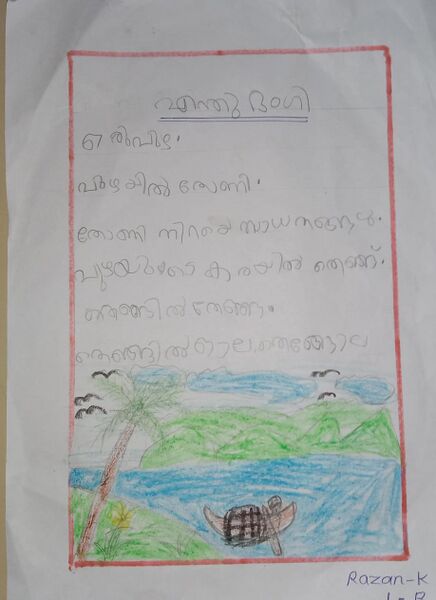 എന്തു ഭംഗി
ഒരു പുഴ.
പുഴയിൽ തോണി.
തോണി നിറയെ സാധനങ്ങൾ.
പുഴയുടെ കരയിൽ തെങ്ങ്.
തെങ്ങിൽ തേങ്ങ.
തെങ്ങിൽ ഓല, തെങ്ങോല
Razan-K
1-B